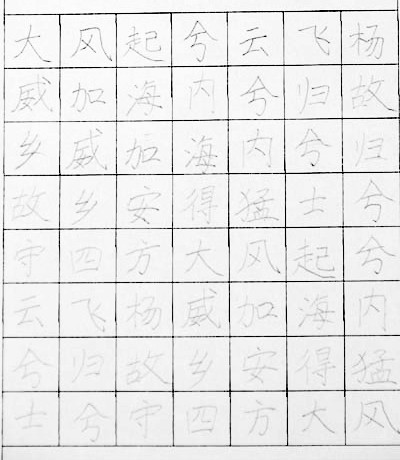 大风起兮云飞杨
威加海内兮归故
乡威加海内兮归
故乡安得猛士兮
守四方大风起兮
云飞杨威加海内
兮归故乡安得猛
士兮守四方大风